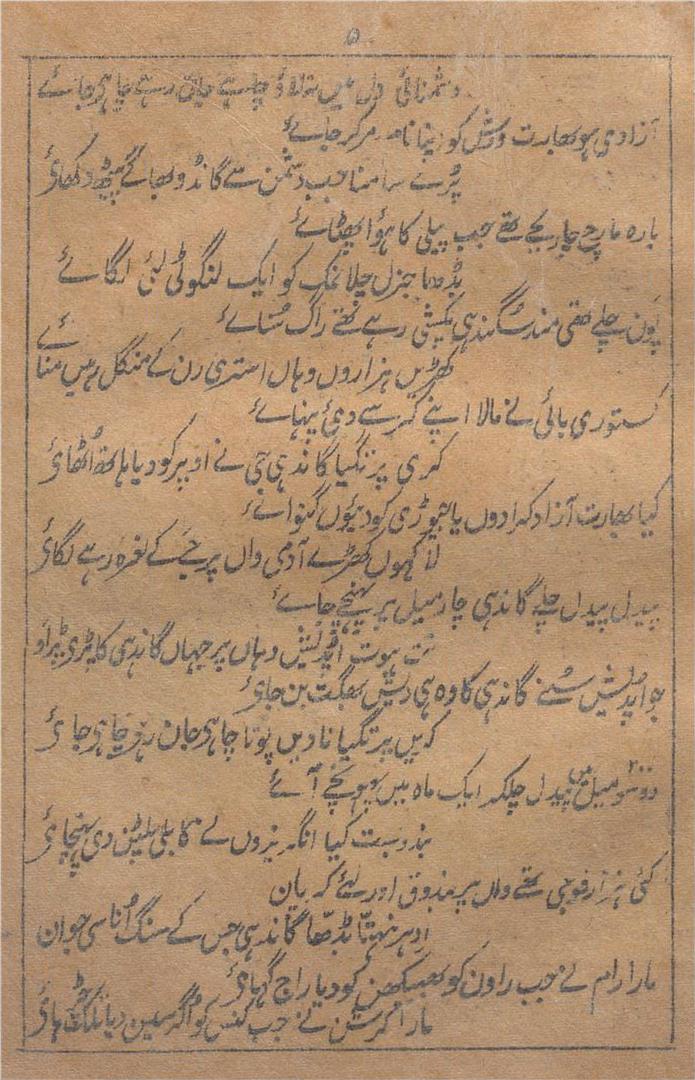 ۵
دشمنائی دل میں نہ لاؤ چاہے جان رہے چاہے جائے
آزادی ہو بھارت ورش کو اپنا نام مرکر جائے
پڑے سامنا جب دشمن سے گانڈو بھاگے پیٹھ دکھائی
بارہ مارچ چار بجے تھے جب پیلی کا ہوا بھٹائے
بڈھا جنرل چلا نمک کو ایک لنگوٹی لئی لگائے
پون چلے تھی مند سگندہی پکشی رہے تھے راگ سنائے
کھڑیں ہزاروں وہاں استری رن کے منگل رہیں منائے
کستوری بائی نے مالا اپنے کر سے دئ پہنائے
کری پرتگیا گاندہی جی نے اوپر کو دیا ہاتھ اٹھائی
کیا بھارت آزاد کرادوں یا تیوڑی کو دیوں گنوائے
لاکھوں کھڑے آدمی واں پر جے کے نعرہ رہے لگائی
پیدل پیدل چلے گاندہی چار میل پر پہنچے جائے
نت ہوت اپدیش وہاں پر جہاں گاندہی کا پڑے پڑاؤ
جو اپدیش سنے گاندہی کا وہ ہی دیش بھگت بن جائی
کریں پرتگیا نا دیں پوتا چاہی جان رہے چاہی جائی
دو سو میل میں پیدل چلکر ایک ماہ میں پہونچے آئے
بندوبست کیا انگریزوں نے کابلی پلٹن دی پہنچائی
کئی ہزار فوجی تھے واں پر بندوق اور لئے کرپان
ادہر نہتا بڈھا گاندہی جس کے سنگ اناسی جوان
مارا رام نے جب راون کو بھبیکھن کو دیا راج گہائی
مارا کرشن نے جب کنس کو اگرسین دیا ملکٹ